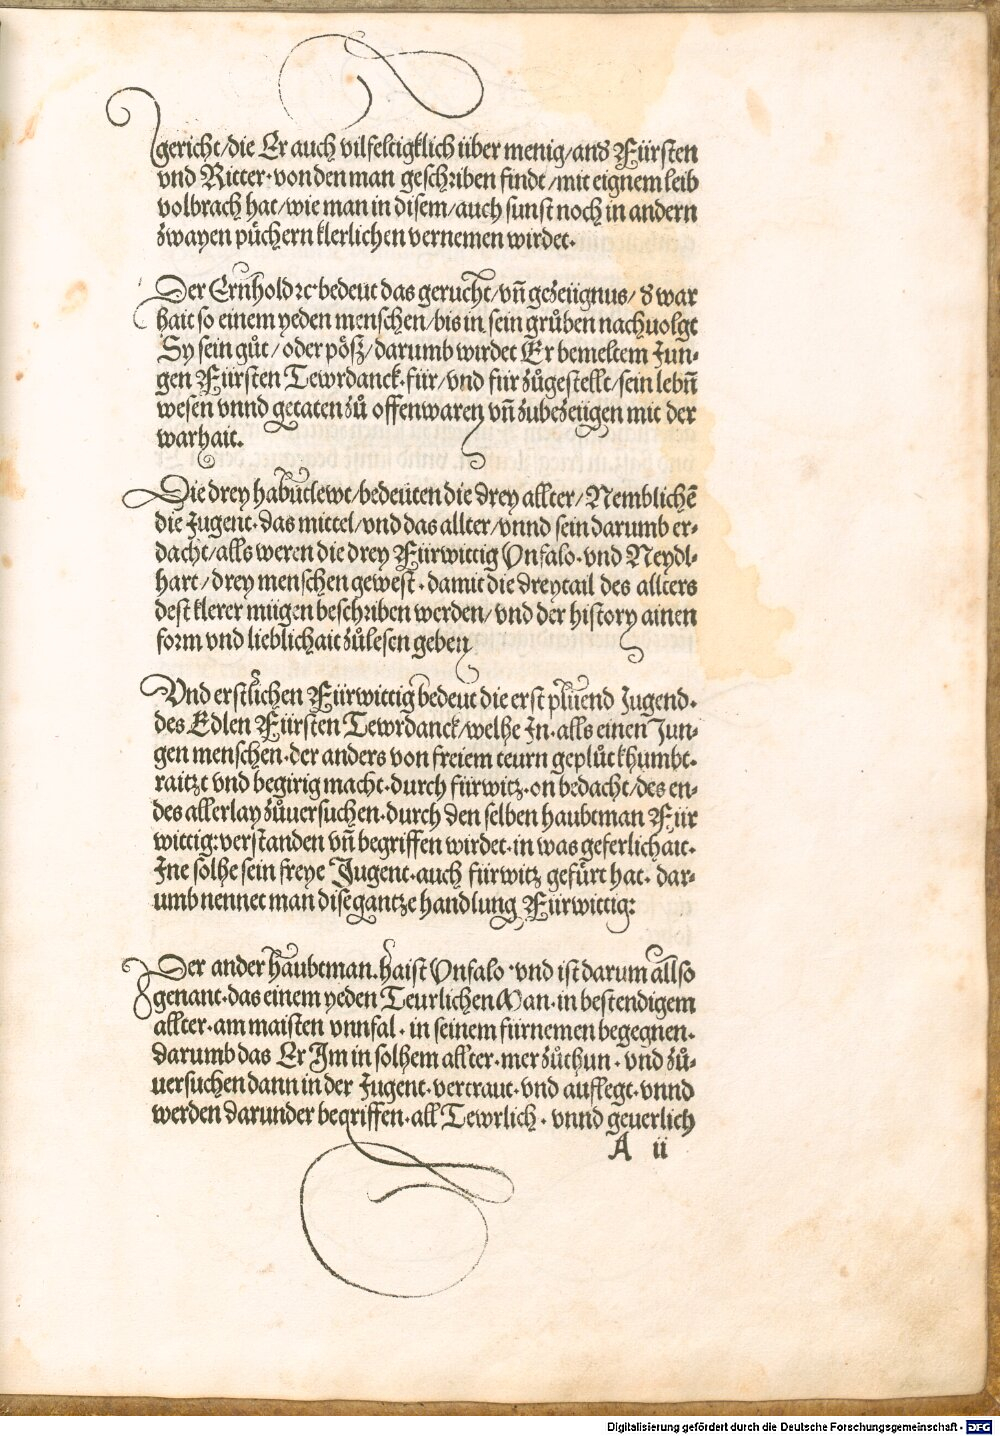 gericht/die Er auch vilfeltigklich über menig/and Fürsten
vnd Ritter·von den man geschriben findt/mit eignem leib
volbrach hat/wie man in disem/auch sunst noch in andern
zwayen püchern klerlichen vernemen wirdet·
Der Ernhold ꝛc·bedeut das gerucht/vn̄ gezeügnus/d war
hait so einem yeden menschen/bis in sein grůben nachuolgt
Sy sein gůt/oder pösz/darumb wirdet Er bemeltem Jun-
gen Fürsten Tewrdanck·für/vnd für zůgestellt/sein lebn̄
wesen vnnd getaten zů offenwaren vn̄ zubezeügen mit der
warhait.
Die drey habutlewt/bedeüten die drey allter/Nemblichē
die Jugent·das mittel/vnd das allter/vnnd sein darumb er-
dacht/alls weren die drey Fürwittig Vnfalo·vnd Neydl-
hart/drey menschen gewest·damit die dreytail des allters
dest klerer mügen beschriben werden/vnd der history ainen
form vnd lieblichait zůlesen geben
Vnd erstlichen Fürwittig bedeut die erst plüend Jugend·
des Edlen Fürsten Tewrdanck/welhe Jn·alls einen Jun-
gen menschen·der anders von freiem teurn geplůt khumbt·
raitzt vnd begirig macht·durch fürwitz·on bedacht/des en-
des allerlay zůuersuchen·durch den selben haubtman Für
wittig:verstanden vn̄ begriffen wirdet·in was geferlichait·
Jne solhe sein freye Jugent·auch fürwitz gefürt hat·dar-
umb nennet man dise gantze handlung Fürwittig:
Der ander haubtman·haist Vnfalo·vnd ist darum allso
genant·das einem yeden Teurlichen Man·in bestendigem
allter·am maisten vnnfal·in seinem fürnemen begegnen·
darumb das Er Jm in solhem allter·mer zůthun·vnd zů-
uersuchen dann in der Jugent·vertraut·vnd auflegt·vnnd
werden darunder begriffen·all Tewrlich·vnnd geuerlich
A ii
Digitalisierung gefördert durch die Deutsche Forschungsgemeinschaft - DFG